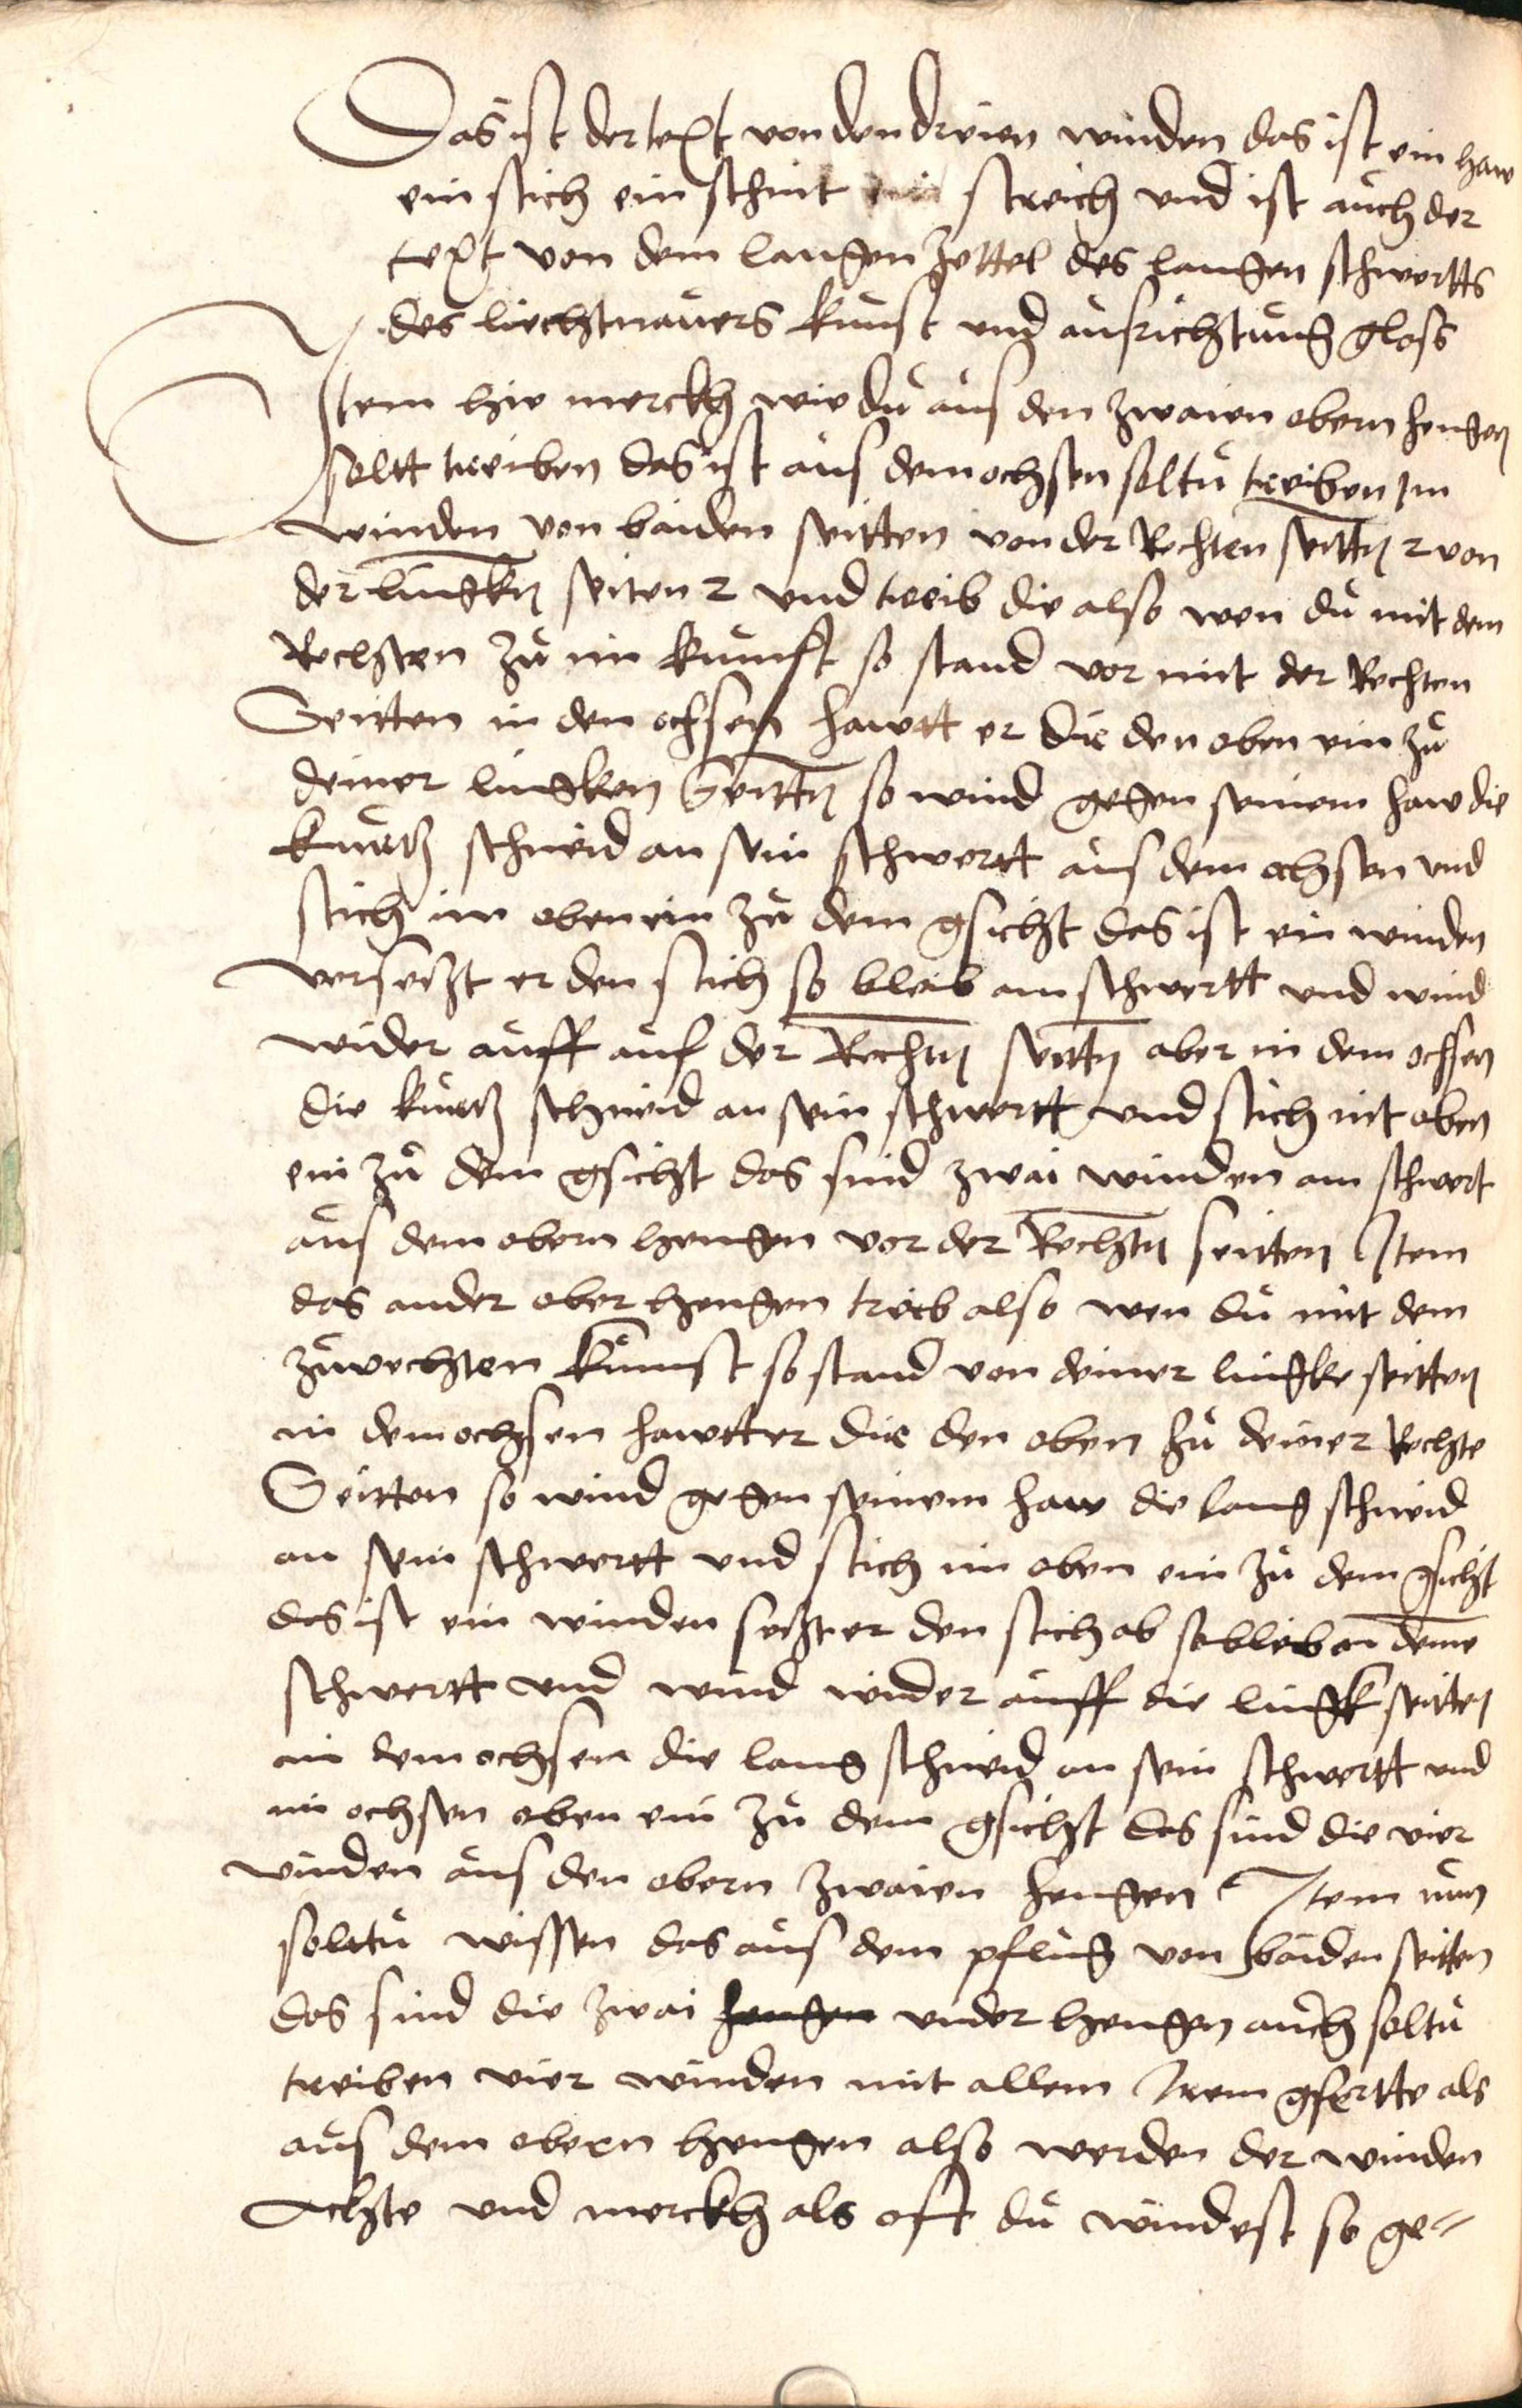 Das ist der text von den dreien winden das ist ein haw
ein stich ein schnit streich und ist aůch der
text von dem langen zettel des langen schwertts
des liechtnaůers kůnst und aůsrichtůng glosß
Item hie merckh wie dů aůs den zwaien obern hengen
soltt treiben das ist aůs dem ochsen soltů treiben Im
winden von baiden seitten von der Rechten seittn̄ 2 von
der lingkn̄ seiten 2 und treib die also wen dů mit dem
Rechsten zů im kůmst so stand vor mit der Rechten
Seitten in den ochsen hawtt er die den oben ein zů
deiner lingken Seittn̄ so wind gegen seinem haw die
kůrtz schneid an sein schwertt aůs dem ochsen und
stich im oben ein zů dem gsicht das ist ein winden
versetzt er den stich so bleib am schwertt und wind
wider aůff auf der Rechtn̄ seittn̄ aber in dem ochsen
die kůrtz schneid an sein schwertt und stich int oben
ein zů dem gsicht das sind zwai winden am schwert
aůs dem obern hengen vor der Rechtn̄ seitten Item
das ander ober hengen treib also wen dů mit dem
zůvechten kůmst so stand von deiner lingke seitten
in dem ochsen hawtt er die den oben zů deiner Rechte
Seitten so wind gegen seinem haw die lang schneid
an sein schwertt und stich im oben ein zů dem gsicht
das ist ein winden setzt er den stich ab so bleib an deme
schwertt und wind wider aůff die lingk seitten
in dem ochsen die lang schneid an sein schwertt und
im ochsen oben ein zů dem gsicht das sind die vier
winden aůs den obern zwaien hengen Item nůn
solttů wissen das aůs dem pflůg von baiden seitten
das sind die zwai hengen under hengen aůch soltů
treiben vier winden mit allem Irem gfertte als
aůs dem obern hengen also werden der winden
Achte und merckh als oft dů windest so ge=